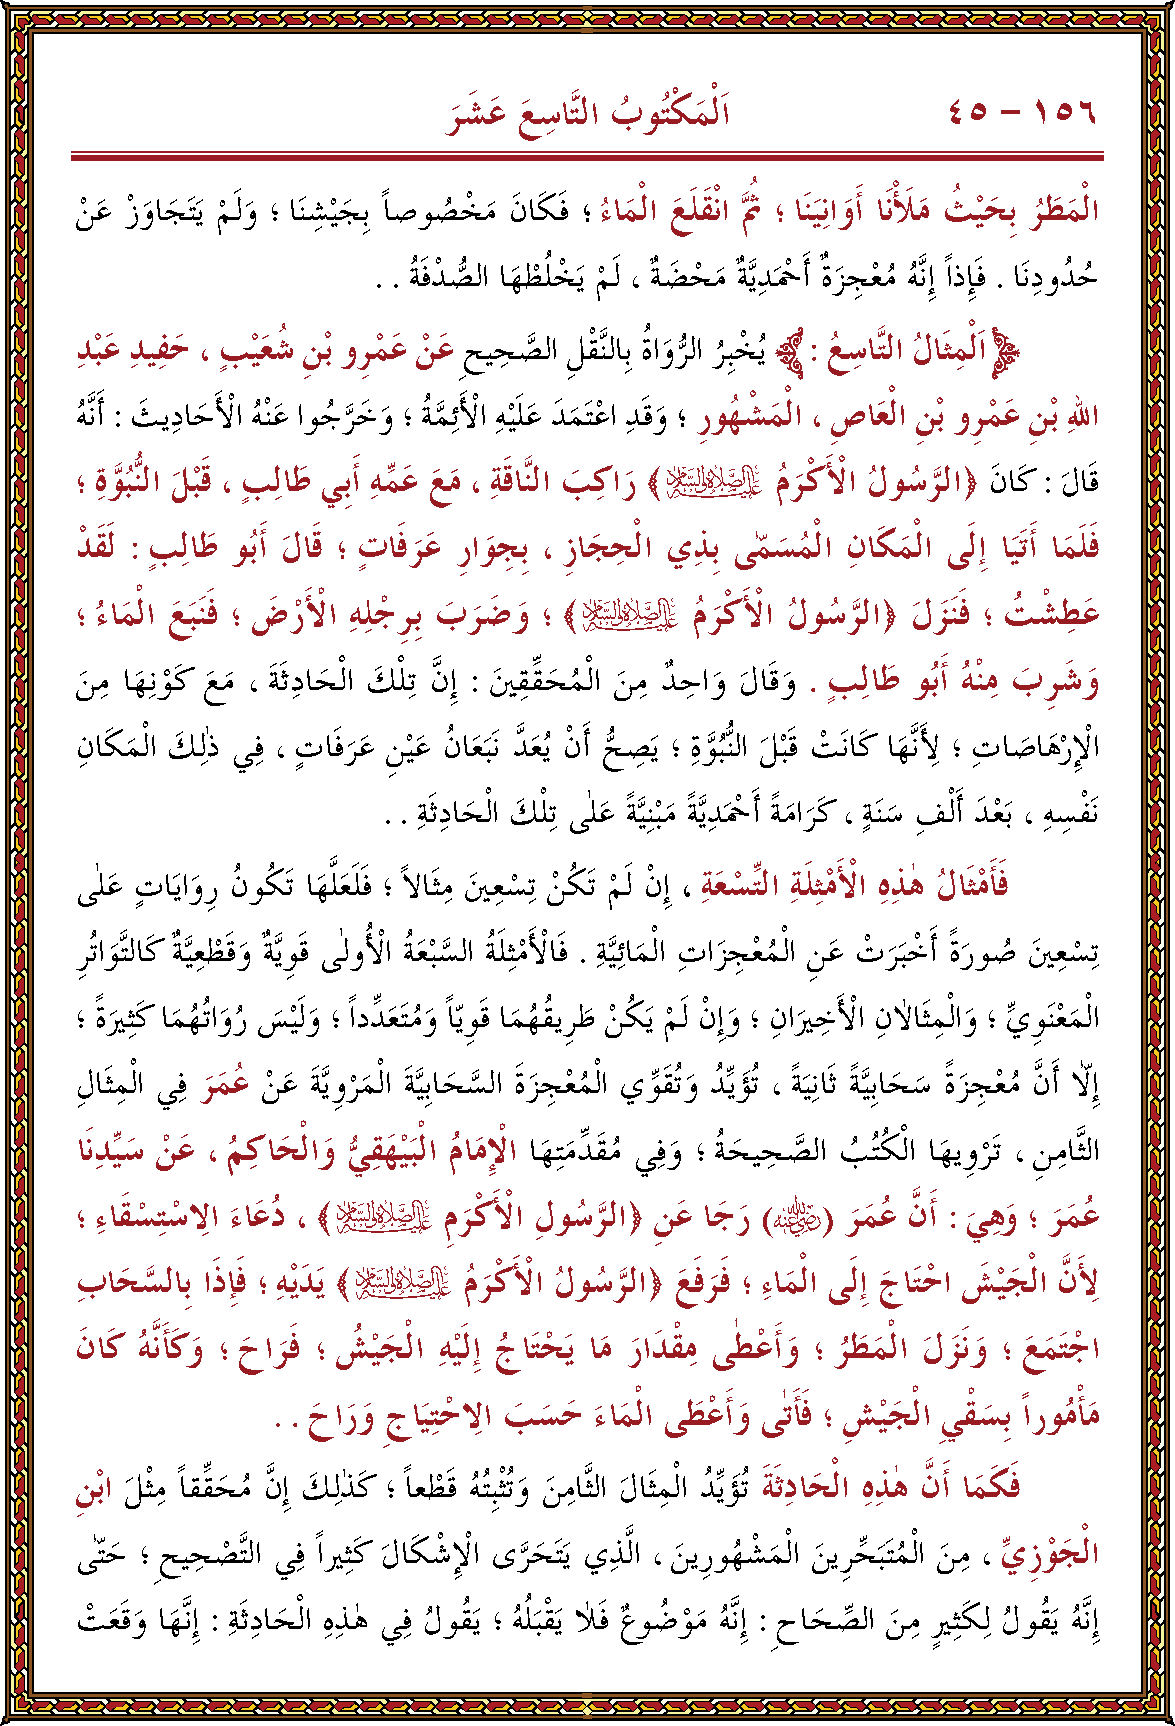 ١٥٦ – ٤٥ اَلْمَكْتُوبُ التَّاسِعَ عَشَرَ
الْمَطَرُ بِحَيْثُ مَلَأْنَا أَوَانِيَنَا ؛ ثُمَّ انْقَلَعَ الْمَاءُ ؛ فَكَانَ مَخْصُوصاً بِجَيْشِنَا ؛ وَلَمْ يَتَجَاوَزْ عَنْ
حُدُودِنَا . فَإِذاً إِنَّهُ مُعْجِزَةٌ أَحْمَدِيَّةٌ مَحْضَةٌ ، لَمْ يَخْلُطْهَا الصُّدْفَةُ . .
﴿اَلْمِثَالُ التَّاسِعُ :﴾ يُخْبِرُ الرُّوَاةُ بِالنَّقْلِ الصَّحِيحِ عَنْ عَمْرِو بْنِ شُعَيْبٍ ، حَفِيدِ عَبْدِ
اللهِ بْنِ عَمْرِو بْنِ الْعَاصِ ، الْمَشْهُورِ ؛ وَقَدِ اعْتَمَدَ عَلَيْهِ الْأَئِمَّةُ ؛ وَخَرَّجُوا عَنْهُ الْأَحَادِيثَ : أَنَّهُ
قَالَ : كَانَ ﴿الرَّسُولُ الْأَكْرَمُ عليه الصلاة والسلام﴾ رَاكِبَ النَّاقَةِ ، مَعَ عَمِّهِ أَبِي طَالِبٍ ، قَبْلَ النُّبُوَّةِ ؛
فَلَمَا أَتَيَا إِلَى الْمَكَانِ الْمُسَمّٰى بِذِي الْحِجَازِ ، بِجِوَارِ عَرَفَاتٍ ؛ قَالَ أَبُو طَالِبٍ : لَقَدْ
عَطِشْتُ ؛ فَنَزَلَ ﴿الرَّسُولُ الْأَكْرَمُ عليه الصلاة والسلام﴾ ؛ وَضَرَبَ بِرِجْلِهِ الْأَرْضَ ؛ فَنَبَعَ الْمَاءُ ؛
وَشَرِبَ مِنْهُ أَبُو طَالِبٍ . وَقَالَ وَاحِدٌ مِنَ الْمُحَقِّقِينَ : إِنَّ تِلْكَ الْحَادِثَةَ ، مَعَ كَوْنِهَا مِنَ
الْإِرْهَاصَاتِ ؛ لِأَنَّهَا كَانَتْ قَبْلَ النُّبُوَّةِ ؛ يَصِحُّ أَنْ يُعَدَّ نَبَعَانُ عَيْنِ عَرَفَاتٍ ، فِي ذٰلِكَ الْمَكَانِ
نَفْسِهِ ، بَعْدَ أَلْفِ سَنَةٍ ، كَرَامَةً أَحْمَدِيَّةً مَبْنِيَّةً عَلٰى تِلْكَ الْحَادِثَةِ . .
فَأَمْثَالُ هٰذِهِ الْأَمْثِلَةِ التِّسْعَةِ ، إِنْ لَمْ تَكُنْ تِسْعِينَ مِثَالاً ؛ فَلَعَلَّهَا تَكُونُ رِوَايَاتٍ عَلٰى
تِسْعِينَ صُورَةً أَخْبَرَتْ عَنِ الْمُعْجِزَاتِ الْمَائِيَّةِ . فَالْأَمْثِلَةُ السَّبْعَةُ الْأُولٰى قَوِيَّةٌ وَقَطْعِيَّةٌ كَالتَّوَاتُرِ
الْمَعْنَوِيِّ ؛ وَالْمِثَالاَنِ الْأَخِيرَانِ ؛ وَإِنْ لَمْ يَكُنْ طَرِيقُهُمَا قَوِيّاً وَمُتَعَدِّداً ؛ وَلَيْسَ رُوَاتُهُمَا كَثِيرَةً ؛
إِلاّ أَنَّ مُعْجِزَةً سَحَابِيَّةً ثَانِيَةً ، تُؤَيِّدُ وَتُقَوِّي الْمُعْجِزَةَ السَّحَابِيَّةَ الْمَرْوِيَّةَ عَنْ عُمَرَ فِي الْمِثَالِ
الثَّامِنِ ، تَرْوِيهَا الْكُتُبُ الصَّحِيحَةُ ؛ وَفِي مُقَدِّمَتِهَا الْإِمَامُ الْبَيْهَقِيُّ وَالْحَاكِمُ ، عَنْ سَيِّدِنَا
عُمَرَ ؛ وَهِيَ : أَنَّ عُمَرَ (رضي الله عنه) رَجَا عَنِ ﴿الرَّسُولِ الْأَكْرَمِ عليه الصلاة والسلام﴾ ، دُعَاءَ الاِسْتِسْقَاءِ ؛
لِأَنَّ الْجَيْشَ احْتَاجَ إِلَى الْمَاءِ ؛ فَرَفَعَ ﴿الرَّسُولُ الْأَكْرَمُ عليه الصلاة والسلام﴾ يَدَيْهِ ؛ فَإِذَا بِالسَّحَابِ
اجْتَمَعَ ؛ وَنَزَلَ الْمَطَرُ ؛ وَأَعْطٰى مِقْدَارَ مَا يَحْتَاجُ إِلَيْهِ الْجَيْشُ ؛ فَرَاحَ ؛ وَكَأَنَّهُ كَانَ
مَأْمُوراً بِسَقْيِ الْجَيْشِ ؛ فَأَتٰى وَأَعْطَى الْمَاءَ حَسَبَ الاِحْتِيَاجِ وَرَاحَ . .
فَكَمَا أَنَّ هٰذِهِ الْحَادِثَةَ تُؤَيِّدُ الْمِثَالَ الثَّامِنَ وَتُثْبِتُهُ قَطْعاً ؛ كَذٰلِكَ إِنَّ مُحَقِّقاً مِثْلَ ابْنِ
الْجَوْزِيِّ ، مِنَ الْمُتَبَحِّرِينَ الْمَشْهُورِينَ ، الَّذِي يَتَحَرَّى الْإِشْكَالَ كَثِيراً فِي التَّصْحِيحِ ؛ حَتّٰى
إِنَّهُ يَقُولُ لِكَثِيرٍ مِنَ الصِّحَاحِ : إِنَّهُ مَوْضُوعٌ فَلاَ يَقْبَلُهُ ؛ يَقُولُ فِي هٰذِهِ الْحَادِثَةِ : إِنَّهَا وَقَعَتْ